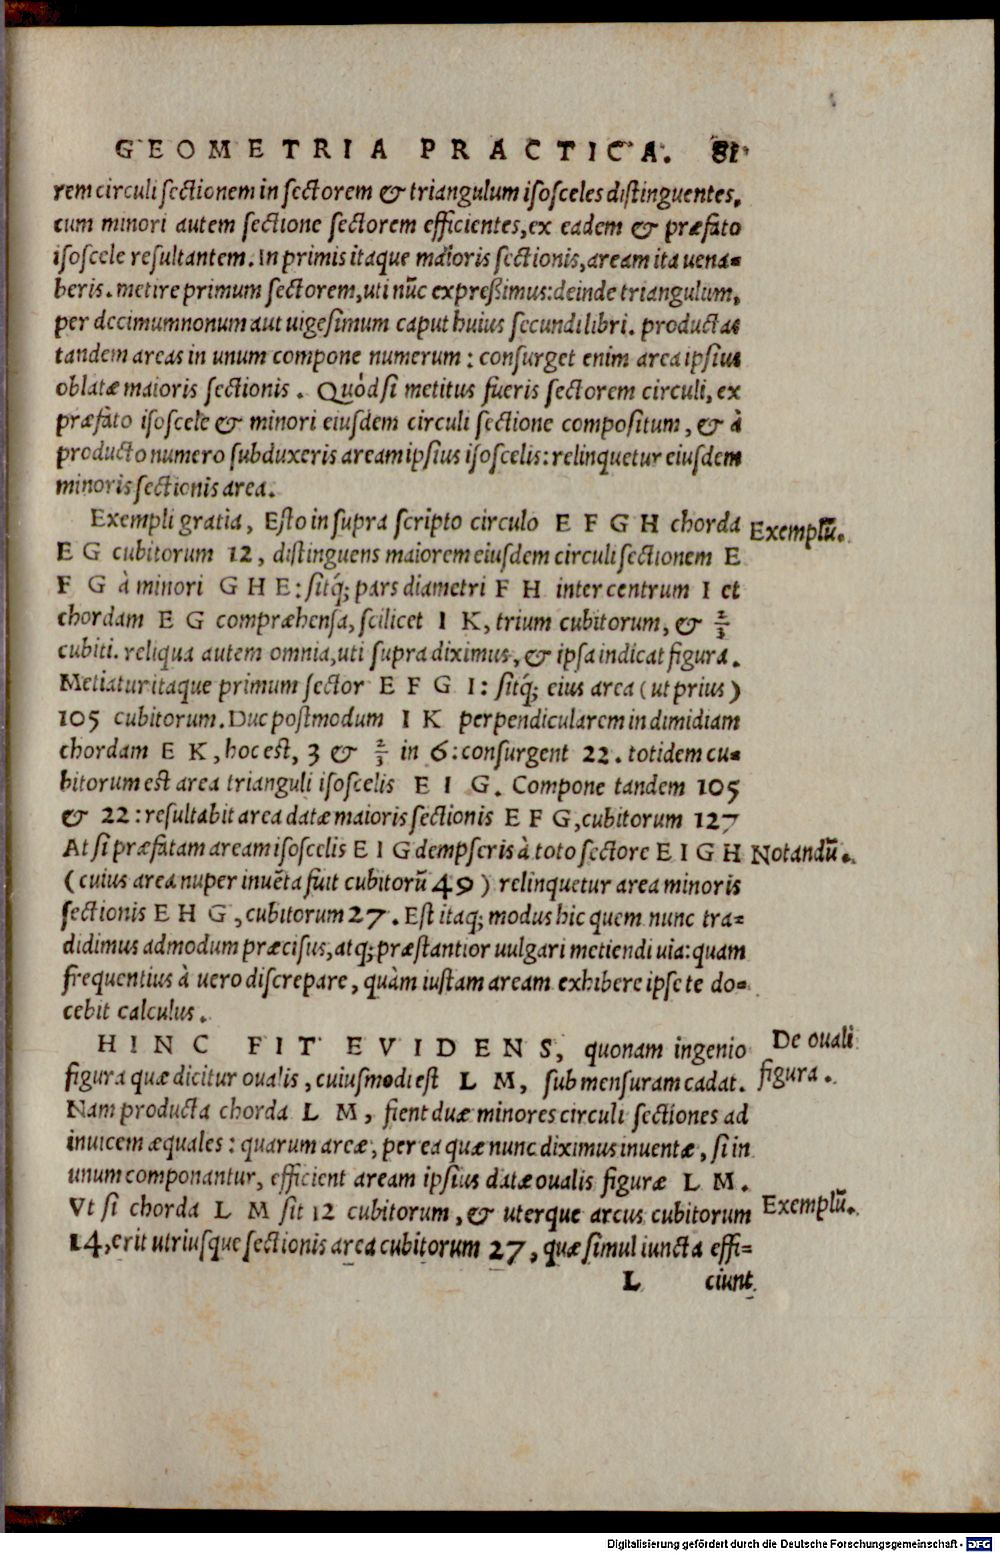 GEOMETRIA PRACTICA. 81
rem circuli sectionem in sectorem & triangulum isosceles distinguentes,
cum minori autem sectione sectorem efficientes, ex eadem & præfato
isoscele resultantem. In primis itaque maioris sectionis, aream ita uena=
beris. metire primum sectorem, uti nūc expreßimus: deinde triangulum,
per decimumnonum aut uigesimum caput huius secundi libri. productas
tandem areas in unum compone numerum: consurget enim area ipsius
oblatæ maioris sectionis. Quòd si metitus fueris sectorem circuli, ex
præfato isoscele & minori eiusdem circuli sectione compositum, & à
producto numero subduxeris aream ipsius isoscelis: relinquetur eiusdem
minoris sectionis area.
Exempli gratia, Esto in supra scripto circulo E F G H chorda
Exemplū.
E G cubitorum 12, distinguens maiorem eiusdem circuli sectionem E
F G à minori G H E: sitq; pars diametri F H inter centrum I et
chordam E G compræhensa, scilicet I K, trium cubitorum, & 2/3
cubiti. reliqua autem omnia, uti supra diximus, & ipsa indicat figura.
Metiatur itaque primum sector E F G I: sitq; eius area (ut prius)
105 cubitorum. Duc postmodum I K perpendicularem in dimidiam
chordam E K, hoc est, 3 & 2/3 in 6: consurgent 22. totidem cu=
bitorum est area trianguli isoscelis E I G. Compone tandem 105
& 22: resultabit area datæ maioris sectionis E F G, cubitorum 127
At si præfatam aream isoscelis E I G dempseris à toto sectore E I G H
Notandū.
(cuius area nuper inuēta fuit cubitorū 49) relinquetur area minoris
sectionis E H G, cubitorum 27. Est itaq; modus hic quem nunc tra=
didimus admodum præcisus, atq; præstantior uulgari metiendi uia: quam
frequentius à uero discrepare, quàm iustam aream exhibere ipse te do=
cebit calculus.
HINC FIT EVIDENS, quonam ingenio
De ouali
figura quæ dicitur oualis, cuiusmodi est L M, sub mensuram cadat.
figura.
Nam producta chorda L M, fient duæ minores circuli sectiones ad
inuicem æquales: quarum areæ, per ea quæ nunc diximus inuentæ, si in
unum componantur, efficient aream ipsius datæ oualis figuræ L M.
Vt si chorda L M sit 12 cubitorum, & uterque arcus cubitorum
Exemplū.
14, erit utriusque sectionis area cubitorum 27, quæ simul iuncta effi=
L ciunt
Digitalisierung gefördert durch die Deutsche Forschungsgemeinschaft - DFG